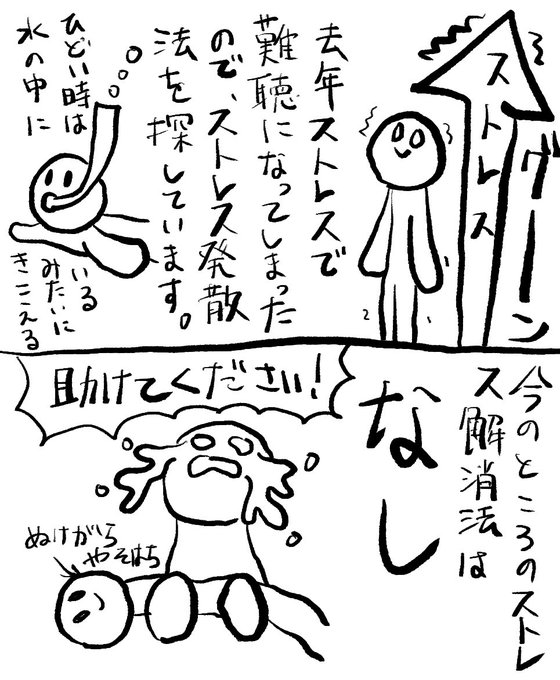 グーン
ストレス
去年ストレスで
難聴になってしまった
ので、ストレス発散
法を探しています。
ひどい時は
水の中に
いる
みたいに
きこえる
今のところのストレ
ス解消法は
なし
助けてください!
ぬけがら
やそはち